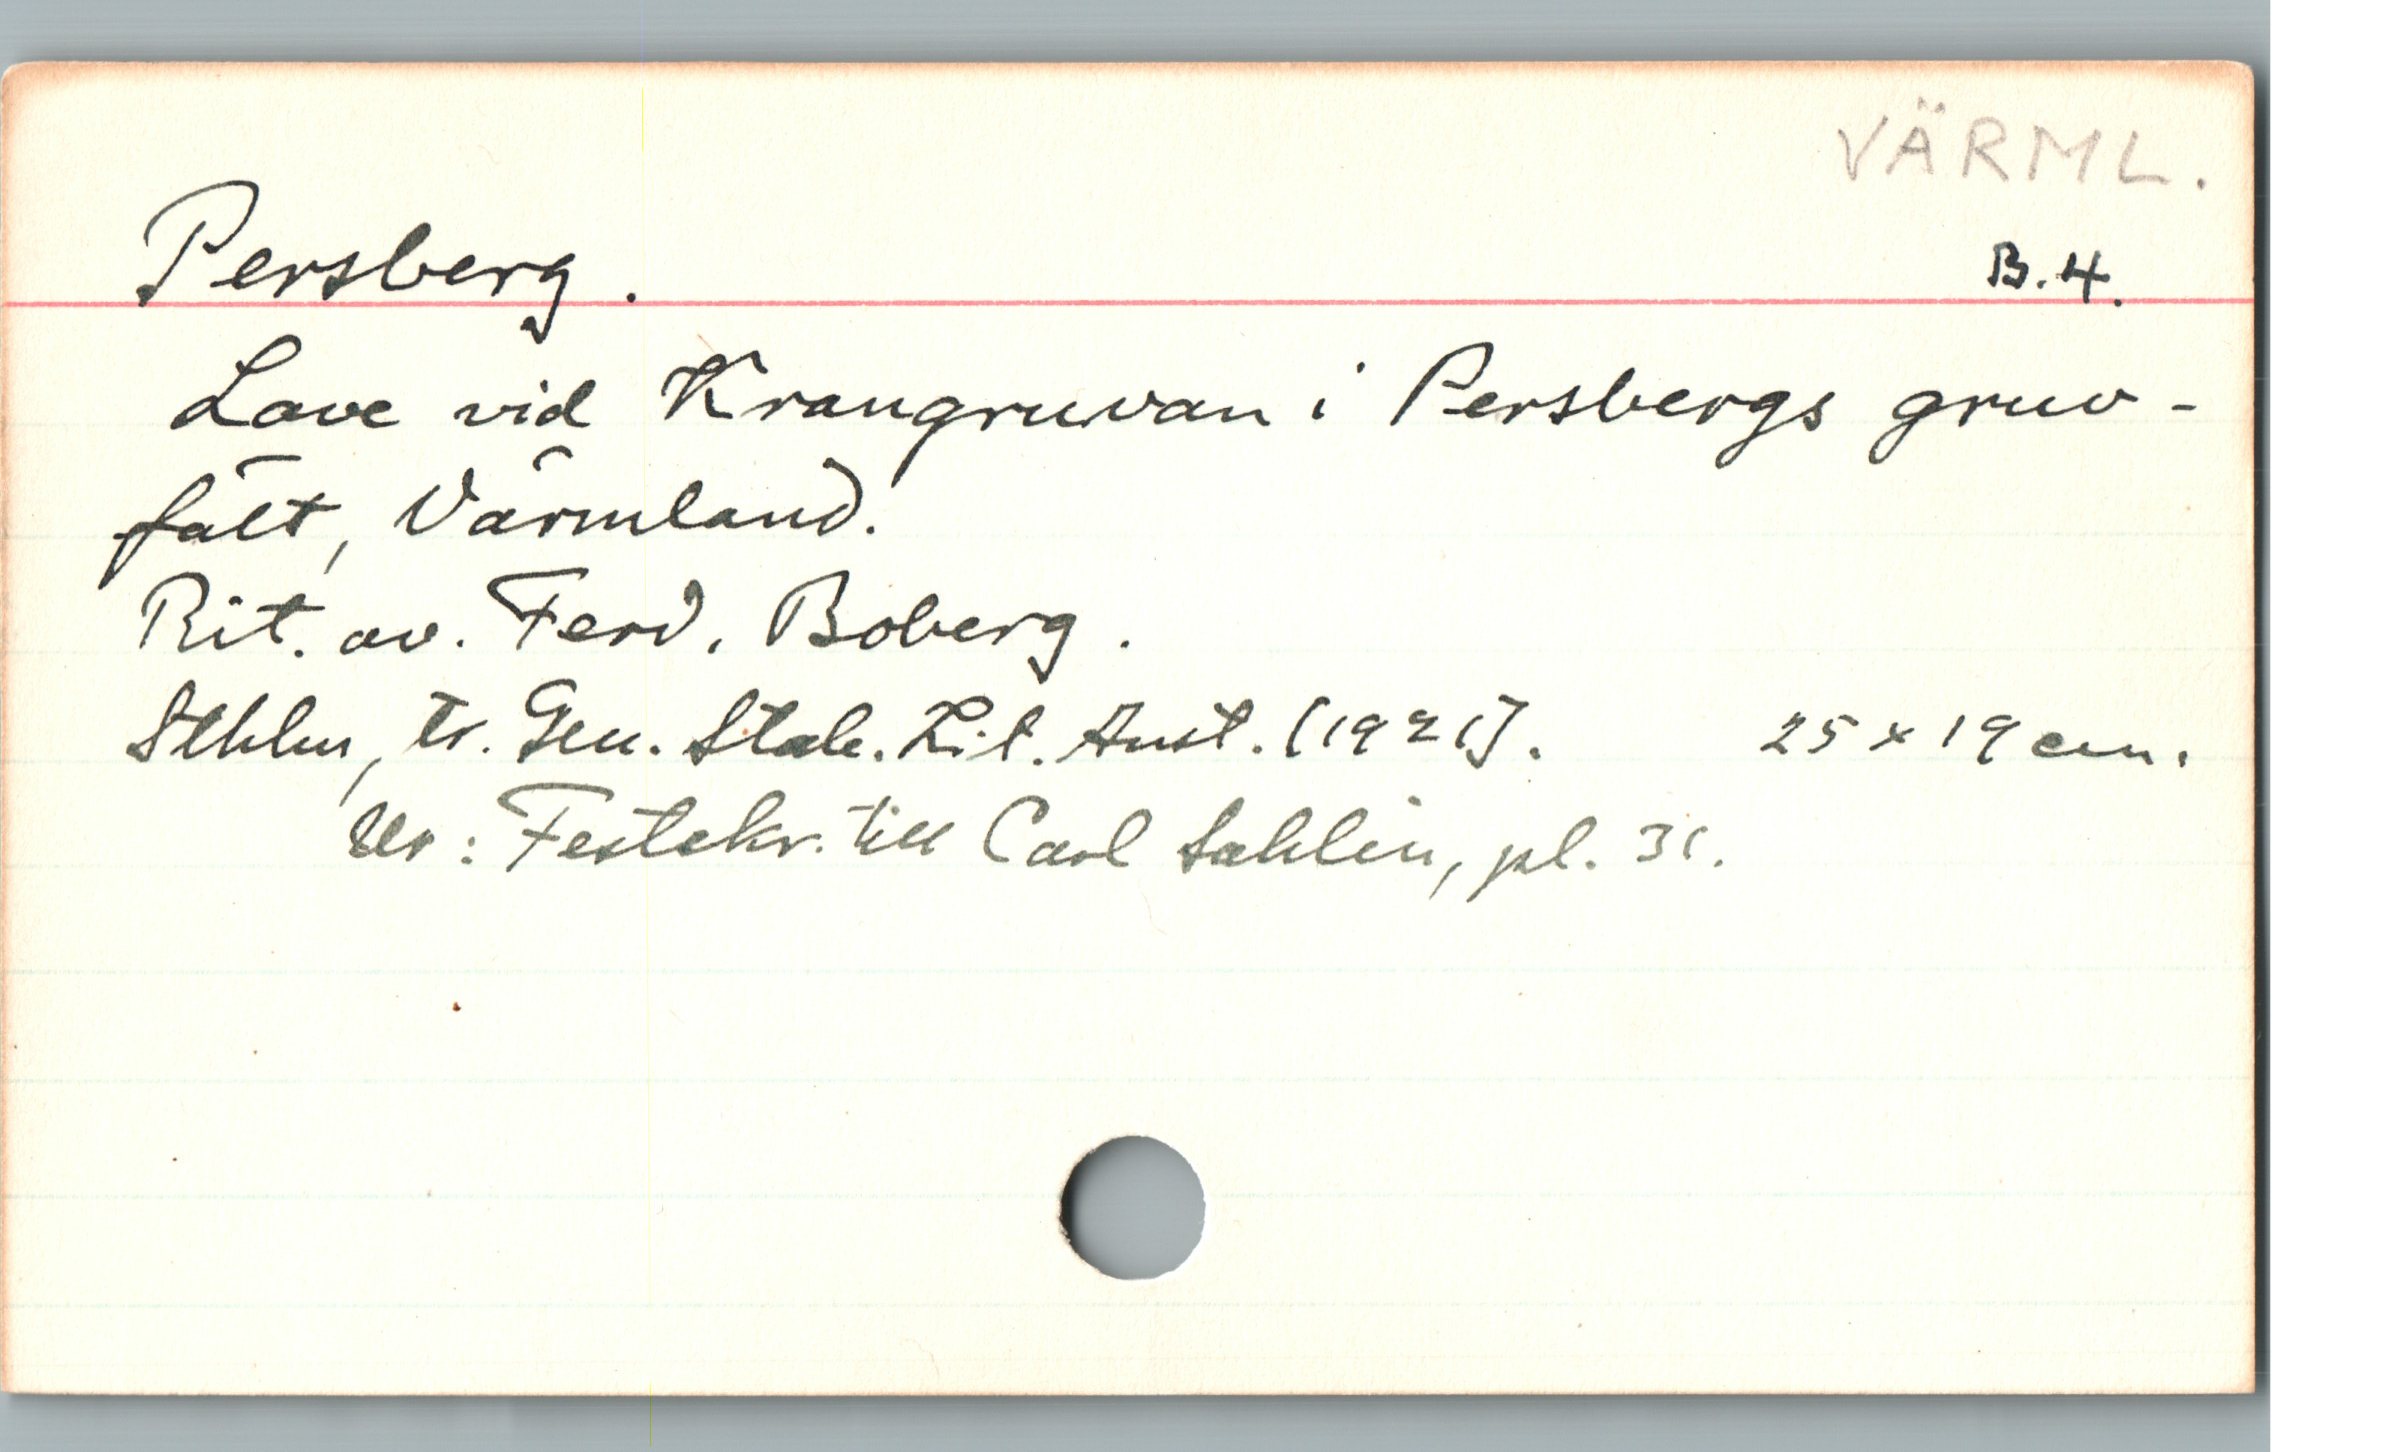 VÄRML.
Persberg. B.4.
Lave vid Krangruvan i Persbergs gruv-
fält, Värmland.
Rit. av. Ferd. Boberg.
Sthlm, tr. Gen. Stab. Lit. Anst. [1921]. 25 x 19 cm.
Ur: Festskr. till Carl Sahlin, pl. 31.